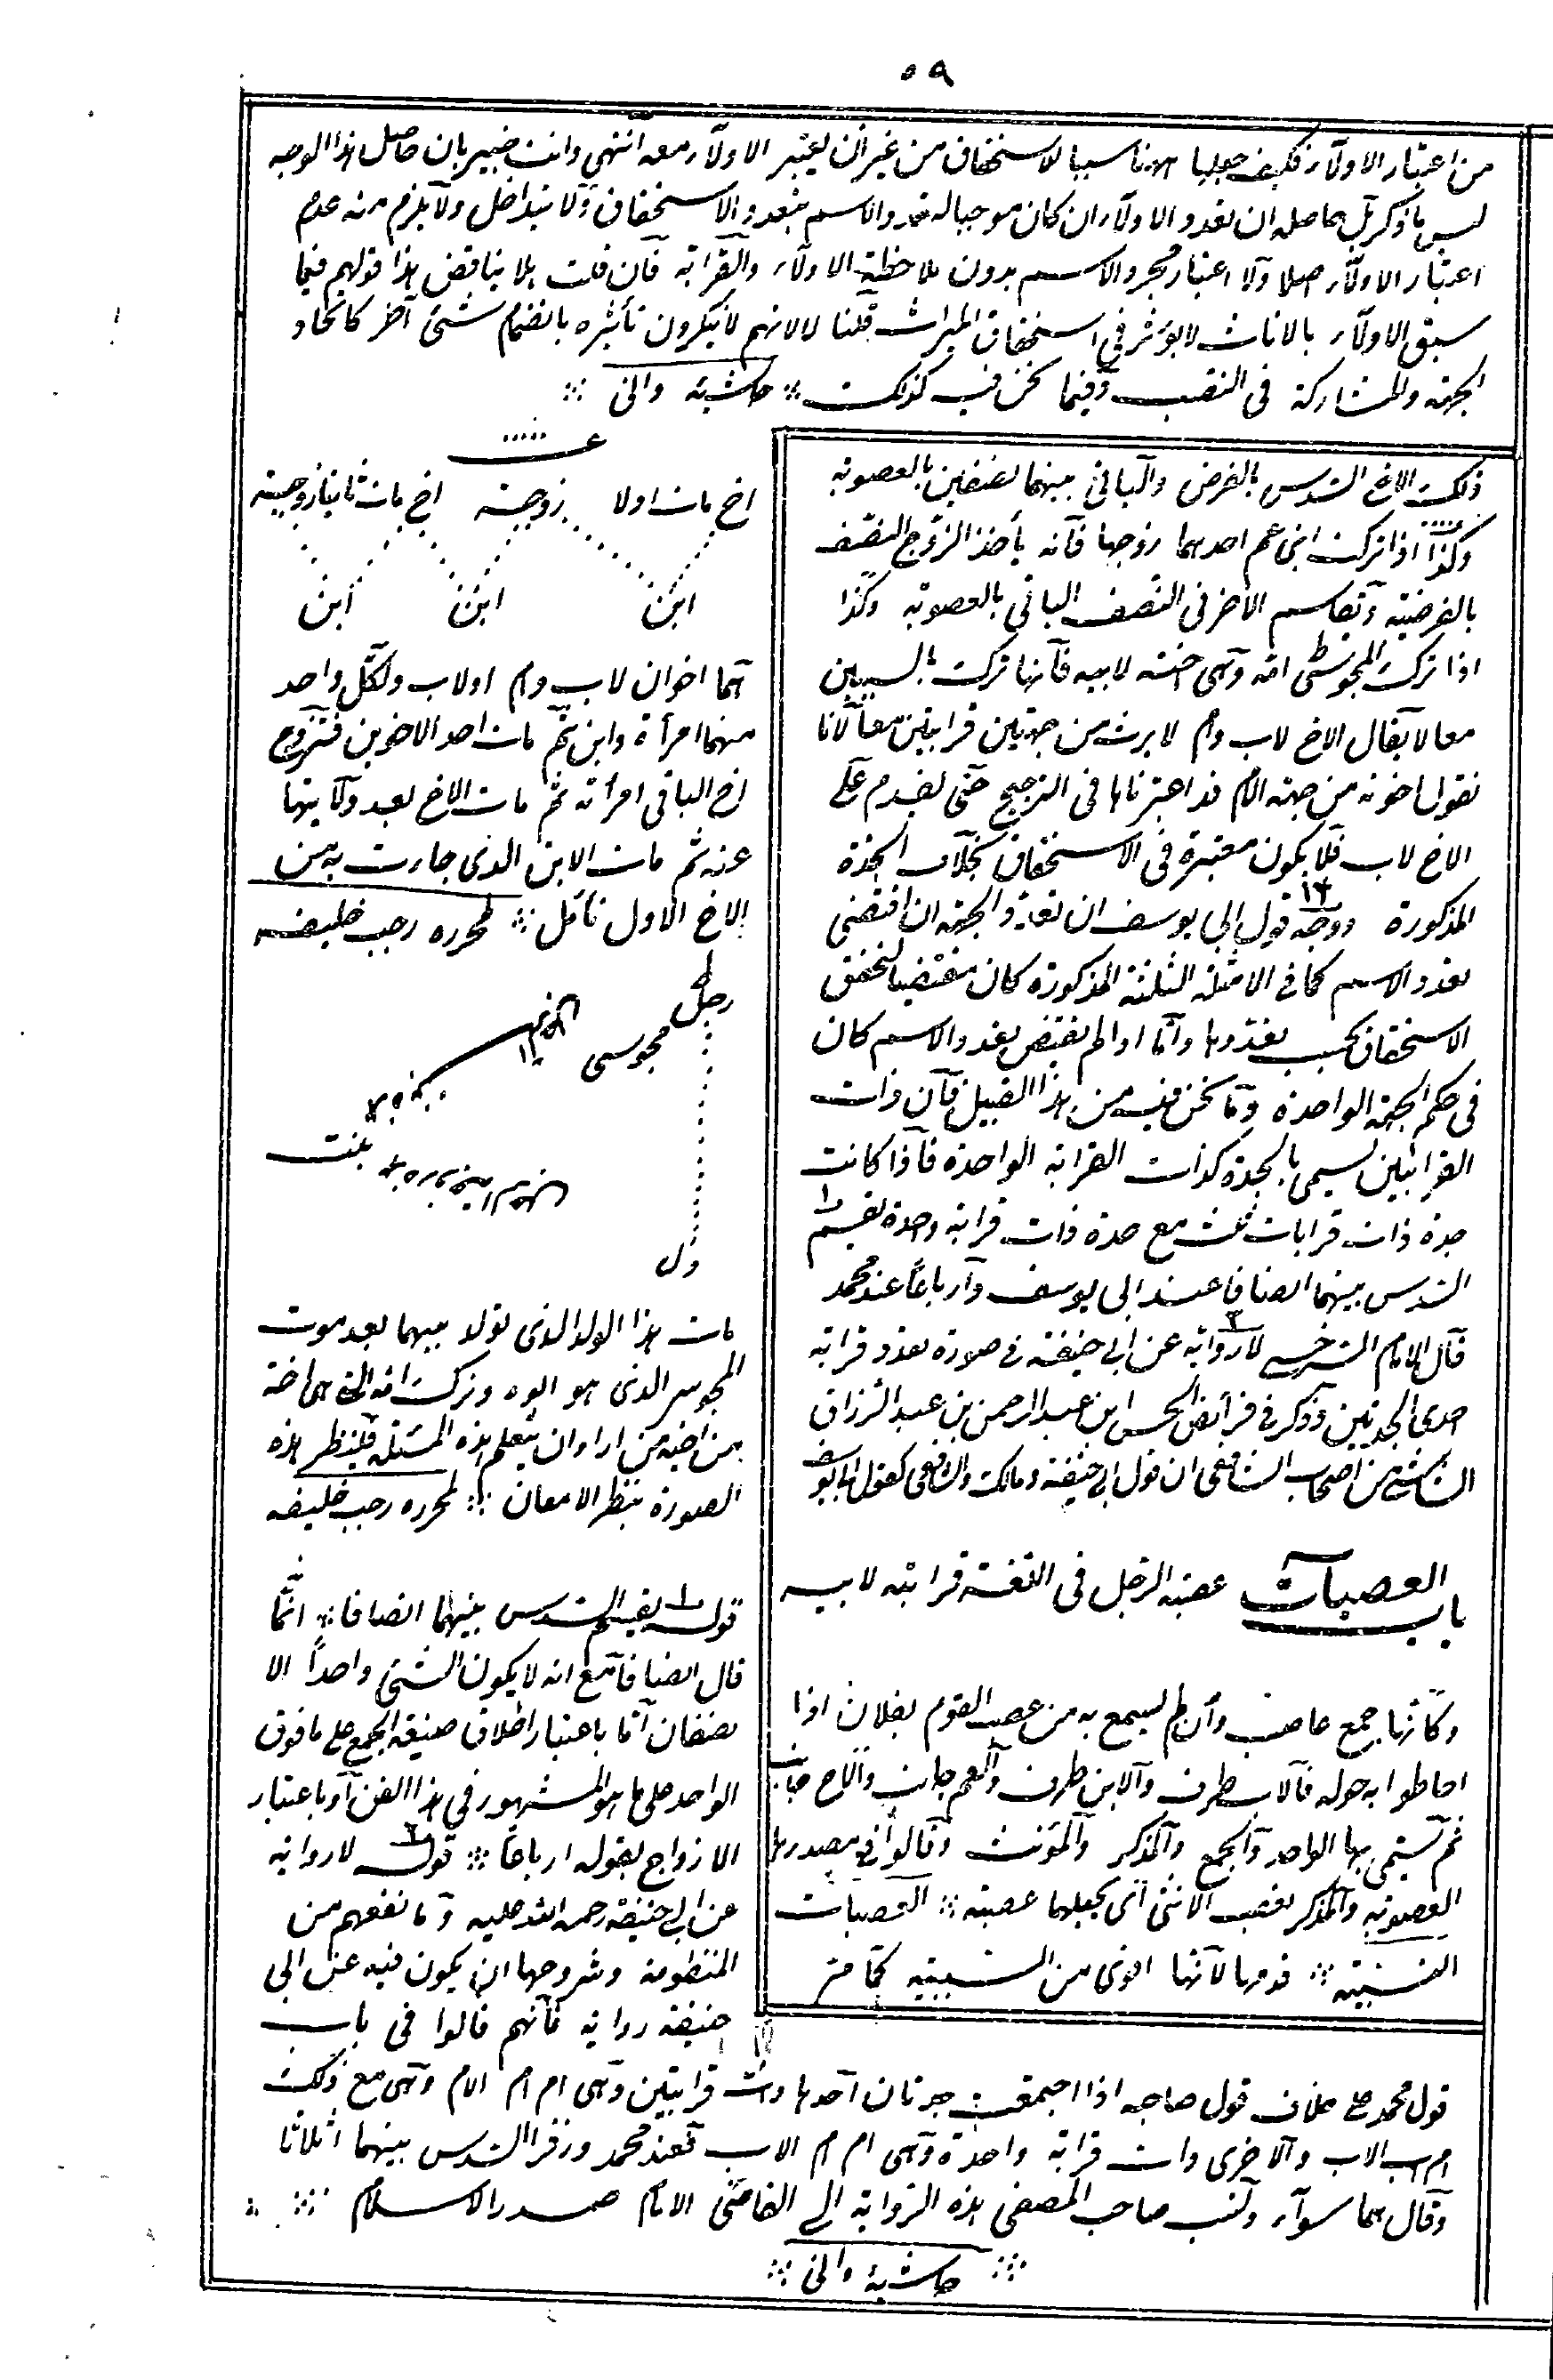 ٥٩
من اعتبار الاولاد فكيف جعلها ههنا سببا للاستحقاق من غير ان يعتبر الاولاد معه انتهى وانت خبير بان حاصل هذا الوجه
ليس ما ذكر بل حاصله ان تعدد الاولاد ان كان موجبا لتعدد الاسم يتعدد الاستحقاق ولا يتداخل ولا يلزم منه عدم
اعتبار الاولاد اصلا ولا اعتبار مجرد الاسم بدون ملاحظة الاولاد والقرابة فان قلت بلا يناقض هذا قولهم فيما
سبق الاولاد بالاناث لا يؤثر في استحقاق الميراث قلنا لا لانهم لا ينكرون تأثيره بانضمام شئ آخر كاتحاد
الجهة والمشاركة فى النصيب وفيما نحن فيه كذلك ∴ حاشية وانى ∴
ذلك الاخ السدس بالفرض والباقى بينهما نصفين بالعصوبة
وكذا اذا تركت ابنى عم احدهما زوجها فانه يأخذ الزوج النصف
بالفرضية ويقاسم الآخر فى النصف الباقى بالعصوبة وكذا
اذا ترك المجوسى امه وهى اخته لابيه فانها ترث بالسببين
معا لا يقال الاخ لاب وام لا يرث من جهتين قرابتين معا لانا
نقول اخوته من جهة الام قد اعتبرناها فى الترجيح حتى يقدم على
الاخ لاب فلا يكون معتبرة فى الاستحقاق بخلاف الجدة
المذكورة ووجه قول ابى يوسف ان تعدد الجهة ان اقتضى
تعدد الاسم كما فى الامثلة الثلثة المذكورة كان مقتضيا لتحقق
الاستحقاق بحسب تعددها واما اذا لم يقتض تعدد الاسم كان
فى حكم الجهة الواحدة وما نحن فيه من هذا القبيل فان ذات
القرابتين يسمى بالجدة كذات القرابة الواحدة فاذا كانت
جدة ذات قرابات ثلث مع جدة ذات قرابة واحدة يقسم
السدس بينهما انصافا عند ابى يوسف وارباعا عند محمد
قال الامام السرخسى لا رواية عن ابى حنيفة فى صورة تعدد قرابة
احدى الجدتين وذكر فى فرائض الحسن ابن عبد الرحمن بن عبد الرزاق
الشاشى من اصحاب الشافعى ان قول ابى حنيفة ومالك والشافعى كقول ابى يوسف
باب العصبات عصبة الرجل فى اللغة قرابته لابيه
وكأنها جمع عاصب وان لم يسمع به من عصب القوم بفلان اذا
احاطوا به حوله فالاب طرف والابن طرف والعم جانب والاخ جانب
ثم يسمى بها الواحد والجمع والمذكر والمؤنث وقالوا فى مصدرها
العصوبة والمذكر يعصب الانثى اى يجعلها عصبة ∴ العصبات
النسبية ∴ قدمها لانها اقوى من السببية كما مر
اخ مات اولا زوجته اخ مات ثانيا زوجته
ابن ابن ابن
هما اخوان لاب وام او لاب ولكل واحد
منهما امرأة وابن ثم مات احد الاخوين فتزوج
اخ الباقى امرأته ثم مات الاخ بعد ولادتها
عنه ثم مات الابن الذى جاءت به من
الاخ الاول تأمل ∴ لمحرره رجب خليفه
رجل مجوسى
بنت
مات هذا الولد الذى تولد بينهما بعد موت
المجوس الذى هو ابوه وترك امه التى هى اخته
فمن اراد ان يتعلم هذه المسئلة فلينظر هذه
الصورة بنظر الامعان ∴ لمحرره رجب خليفه
قوله يقسم السدس بينهما انصافا ∴ انما
قال انصافا مع انه لا يكون الشئ واحدا الا
نصفان اما باعتبار اطلاق صيغة الجمع على ما فوق
الواحد على ما هو المشهور فى هذا الفن او باعتبار
الازدواج بقوله ارباعا ∴ قوله لا رواية
عن ابى حنيفة رحمه الله عليه وما نفعهم من
المنظومة وشروحها ان يكون فيه عن ابى
حنيفة رواية فانهم قالوا فى باب
قول محمد على خلاف قول صاحبه اذا اجتمعت جدتان احدها ذات قرابتين وهى ام ام الام وهى مع ذلك
ام اب الاب والاخرى ذات قرابة واحدة وهى ام ام الاب فعند محمد وزفر السدس بينهما اثلاثا
وقال هما سواء ونسب صاحب المصفى هذه الرواية الى القاضى الامام صدر الاسلام ∴
∴ حاشية وانى ∴